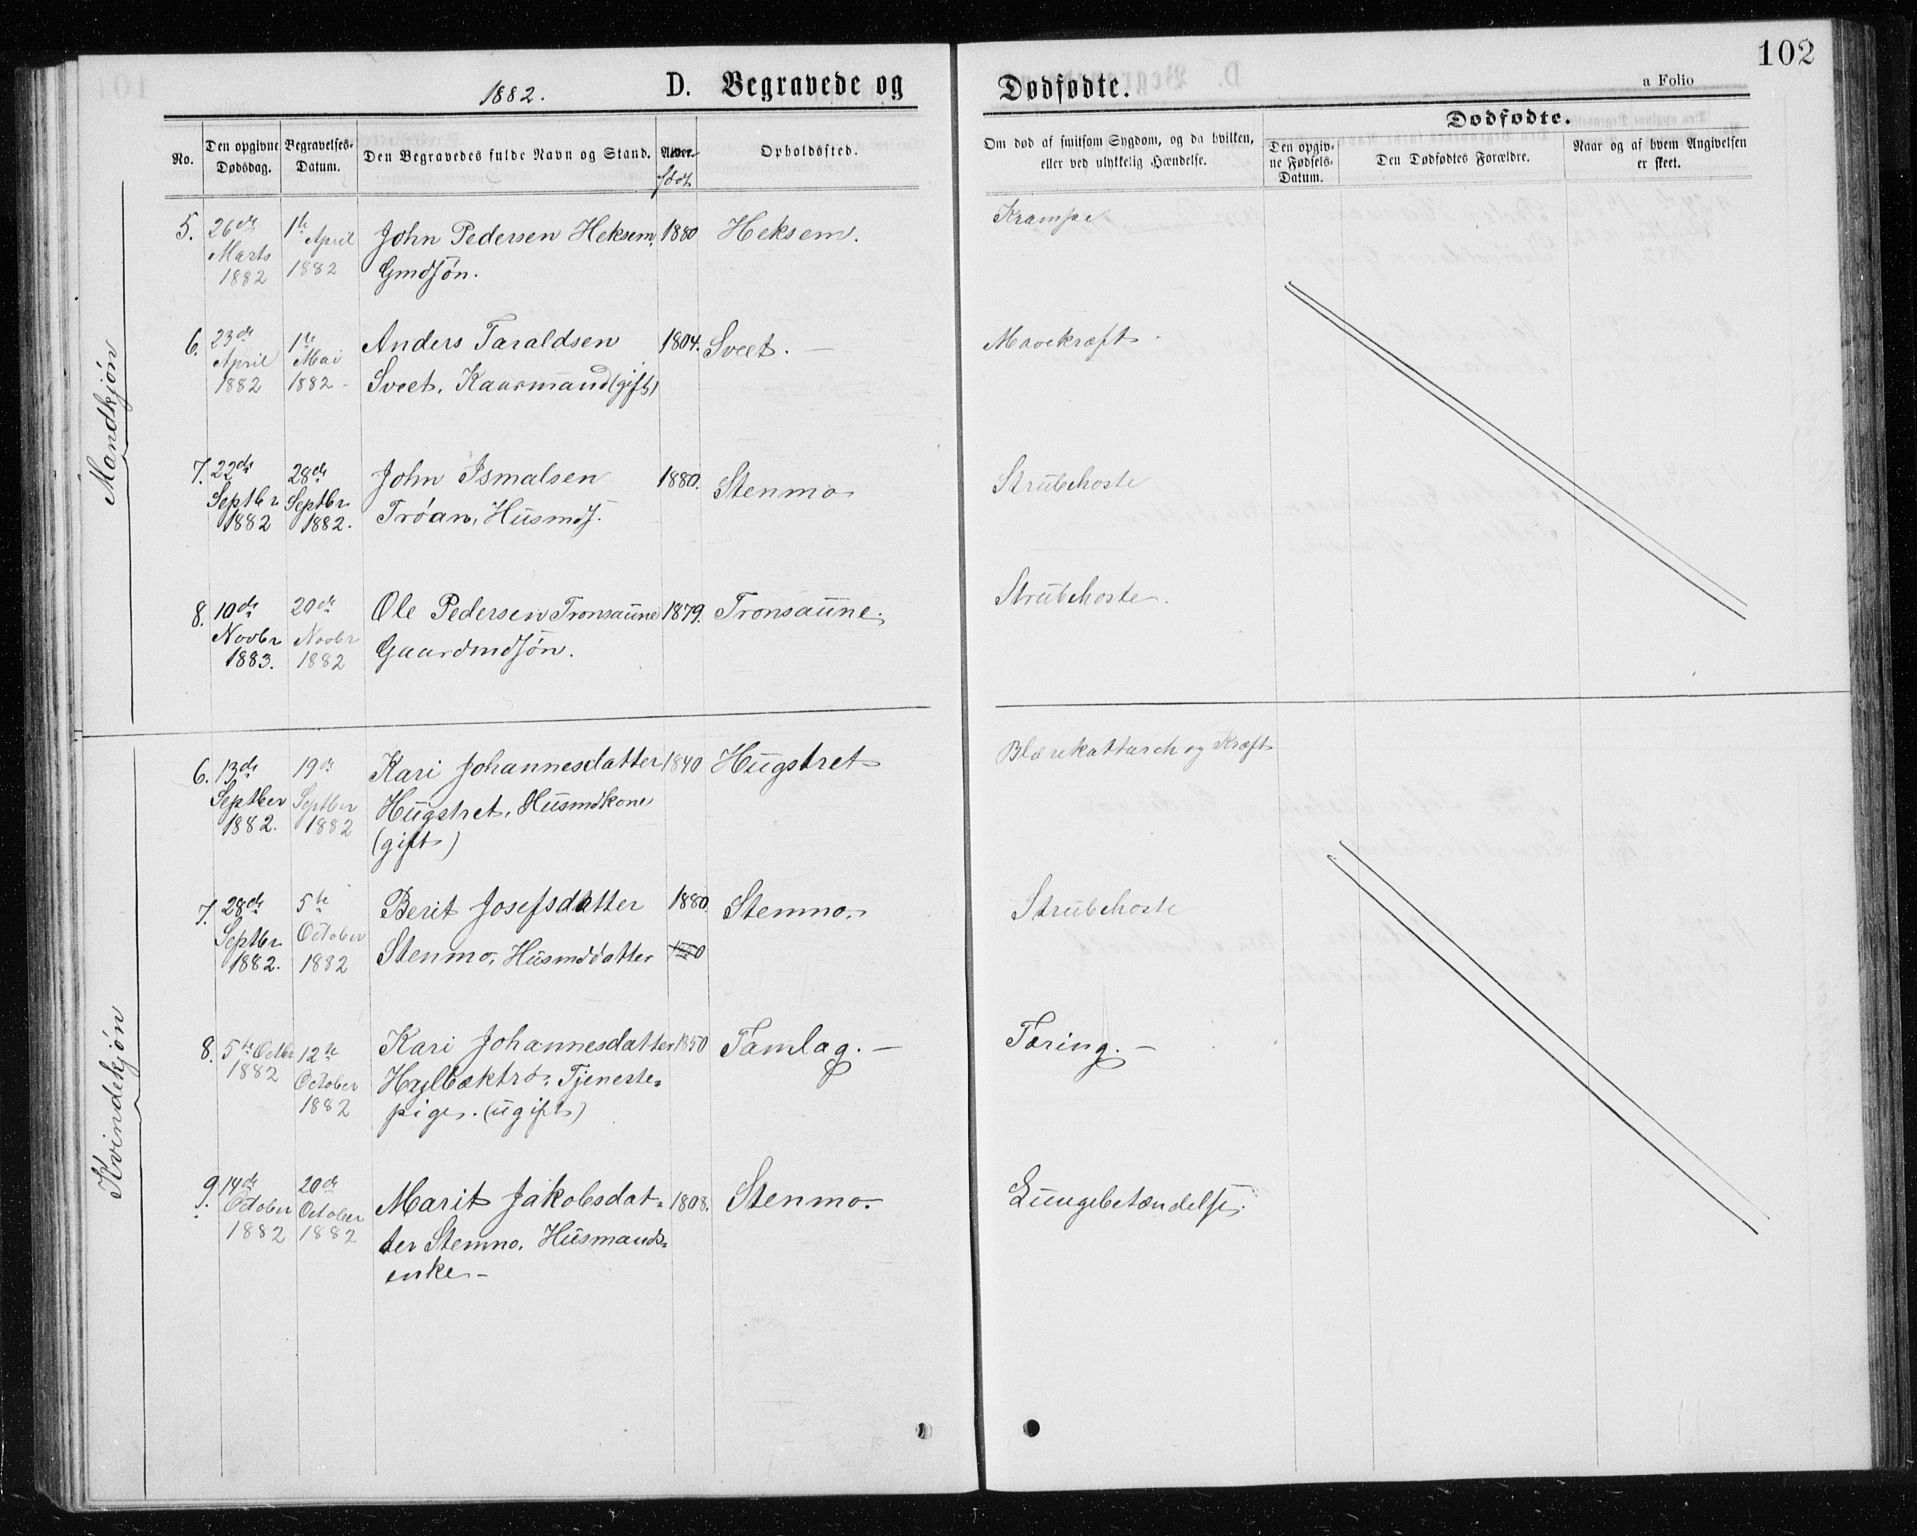 102
1882. D. Begravede og Dødfødte. a Folio
No. Den opgivne Dødsdag. Begravelses-Datum. Den Begravedes fulde Navn og Stand. Alder. født Opholdssted. Om død af smitsom Sygdom, og da hvilken, eller ved ulykkelig Hændelse. Dødfødte.
Den opgivne Fødsels-Datum. Den Dødfødtes Forældre. Naar og af hvem Angivelsen er skeet.
Mandkjøn
5. 26de 1te April John Pedersen Heksem, 1880 Heksem. Krampe
Marts 1882 Gmdsøn.
1882
6. 23de 1te Anders Taraldsen 1804. Sveet. — Mavekræft
April Mai Sveet, Kaarmand (gift)
1882 1882
7. 22de 28de John Ismalsen 1880. Stenmo Strubehoste
Septbr Septbr Trøan, Husmds.
1882 1882.
8. 10de 20de Ole Pedersen Tronsaune 1879. Tronsaune. Strubehoste.
Novbr Novbr Gaardmdsøn.
1883. 1882
Kvindekjøn
6. 13de 19de Kari Johannesdatter 1840 Hugstret Blærekattarh og Kræft
Septber Septber Hugstret, Husmdkone
1882. 1882 (gift)
7. 28de 5te Berit Josefsdatter 1880. Stenmo. Strubehoste
Septbr October Stenmo, Husmddatter
1882. 1882
8. 5te Octbr 12te Kari Johannesdatter 1850 Tamlag. — Tæring. —
1882 October Hylbæktrø, Tjeneste-
1882 pige. (ugift)
9. 14de 20de Marit Jakobsdat- 1808. Stenmo. Lungebetændelse.
October October ter Stenmo, Husmands-
1882 1882 enke —